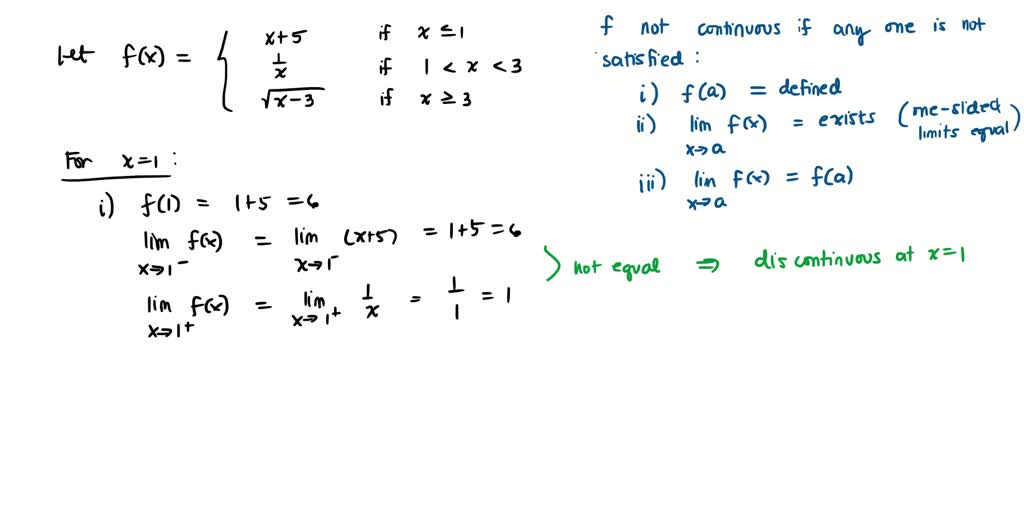 Let f(x) = { x+5 if x ≤ 1
1/x if 1 < x < 3
√(x-3) if x ≥ 3
f not continuous if any one is not
satisfied:
i) f(a) = defined
ii) lim x→a f(x) = exists (one-sided limits equal)
iii) lim x→a f(x) = f(a)
For x=1:
i) f(1) = 1+5 = 6
lim x→1⁻ f(x) = lim x→1⁻ (x+5) = 1+5 = 6
lim x→1⁺ f(x) = lim x→1⁺ 1/x = 1/1 = 1
> not equal ⇒ discontinuous at x=1